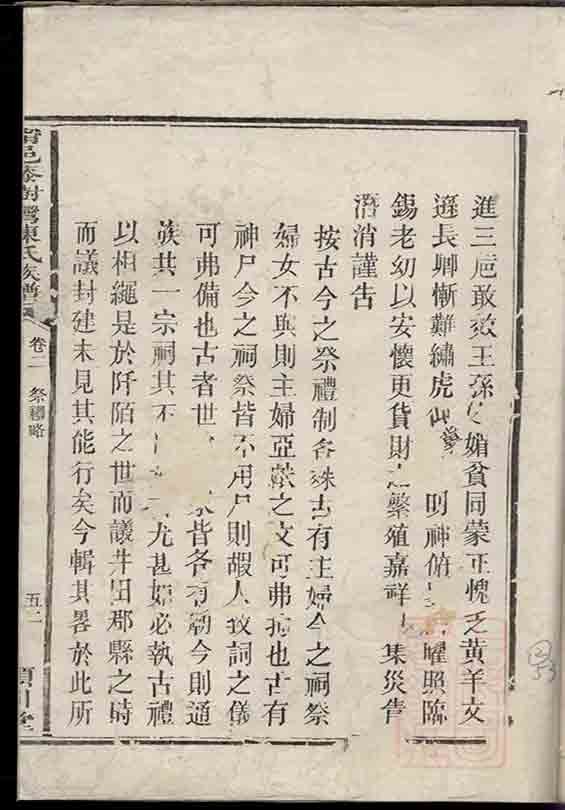 進三卮敢效王孫之媚貧同蒙正愧乏黃羊文
遜長卿慚難繡虎 明神俯 曜照臨
錫老幼以安懷更貨財之繁殖嘉祥 集災眚
潛消謹告
按古今之祭禮制各殊古有主婦今之祠祭
婦女不與則主婦亞獻之文可弗 也古有
神尸今之祠祭皆不用尸則嘏人致詞之儀
可弗備也古者世 皆各有廟今則通
族共一宗祠其不 尤甚如必執古禮
以相繩是於阡陌之世而議井田郡縣之時
而議封建未見其能行矣今輯其畧於此所
邑 樹灣陳氏族譜
卷二 祭禮略
五二
川堂